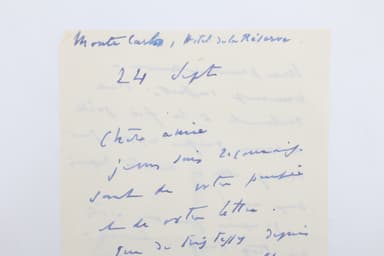 Monte Carlo, Hôtel de la Réserve
24 Sept
Chère amie
je vous suis reconnais-
sant de votre pensée
et de votre lettre.
que de tristesses depuis